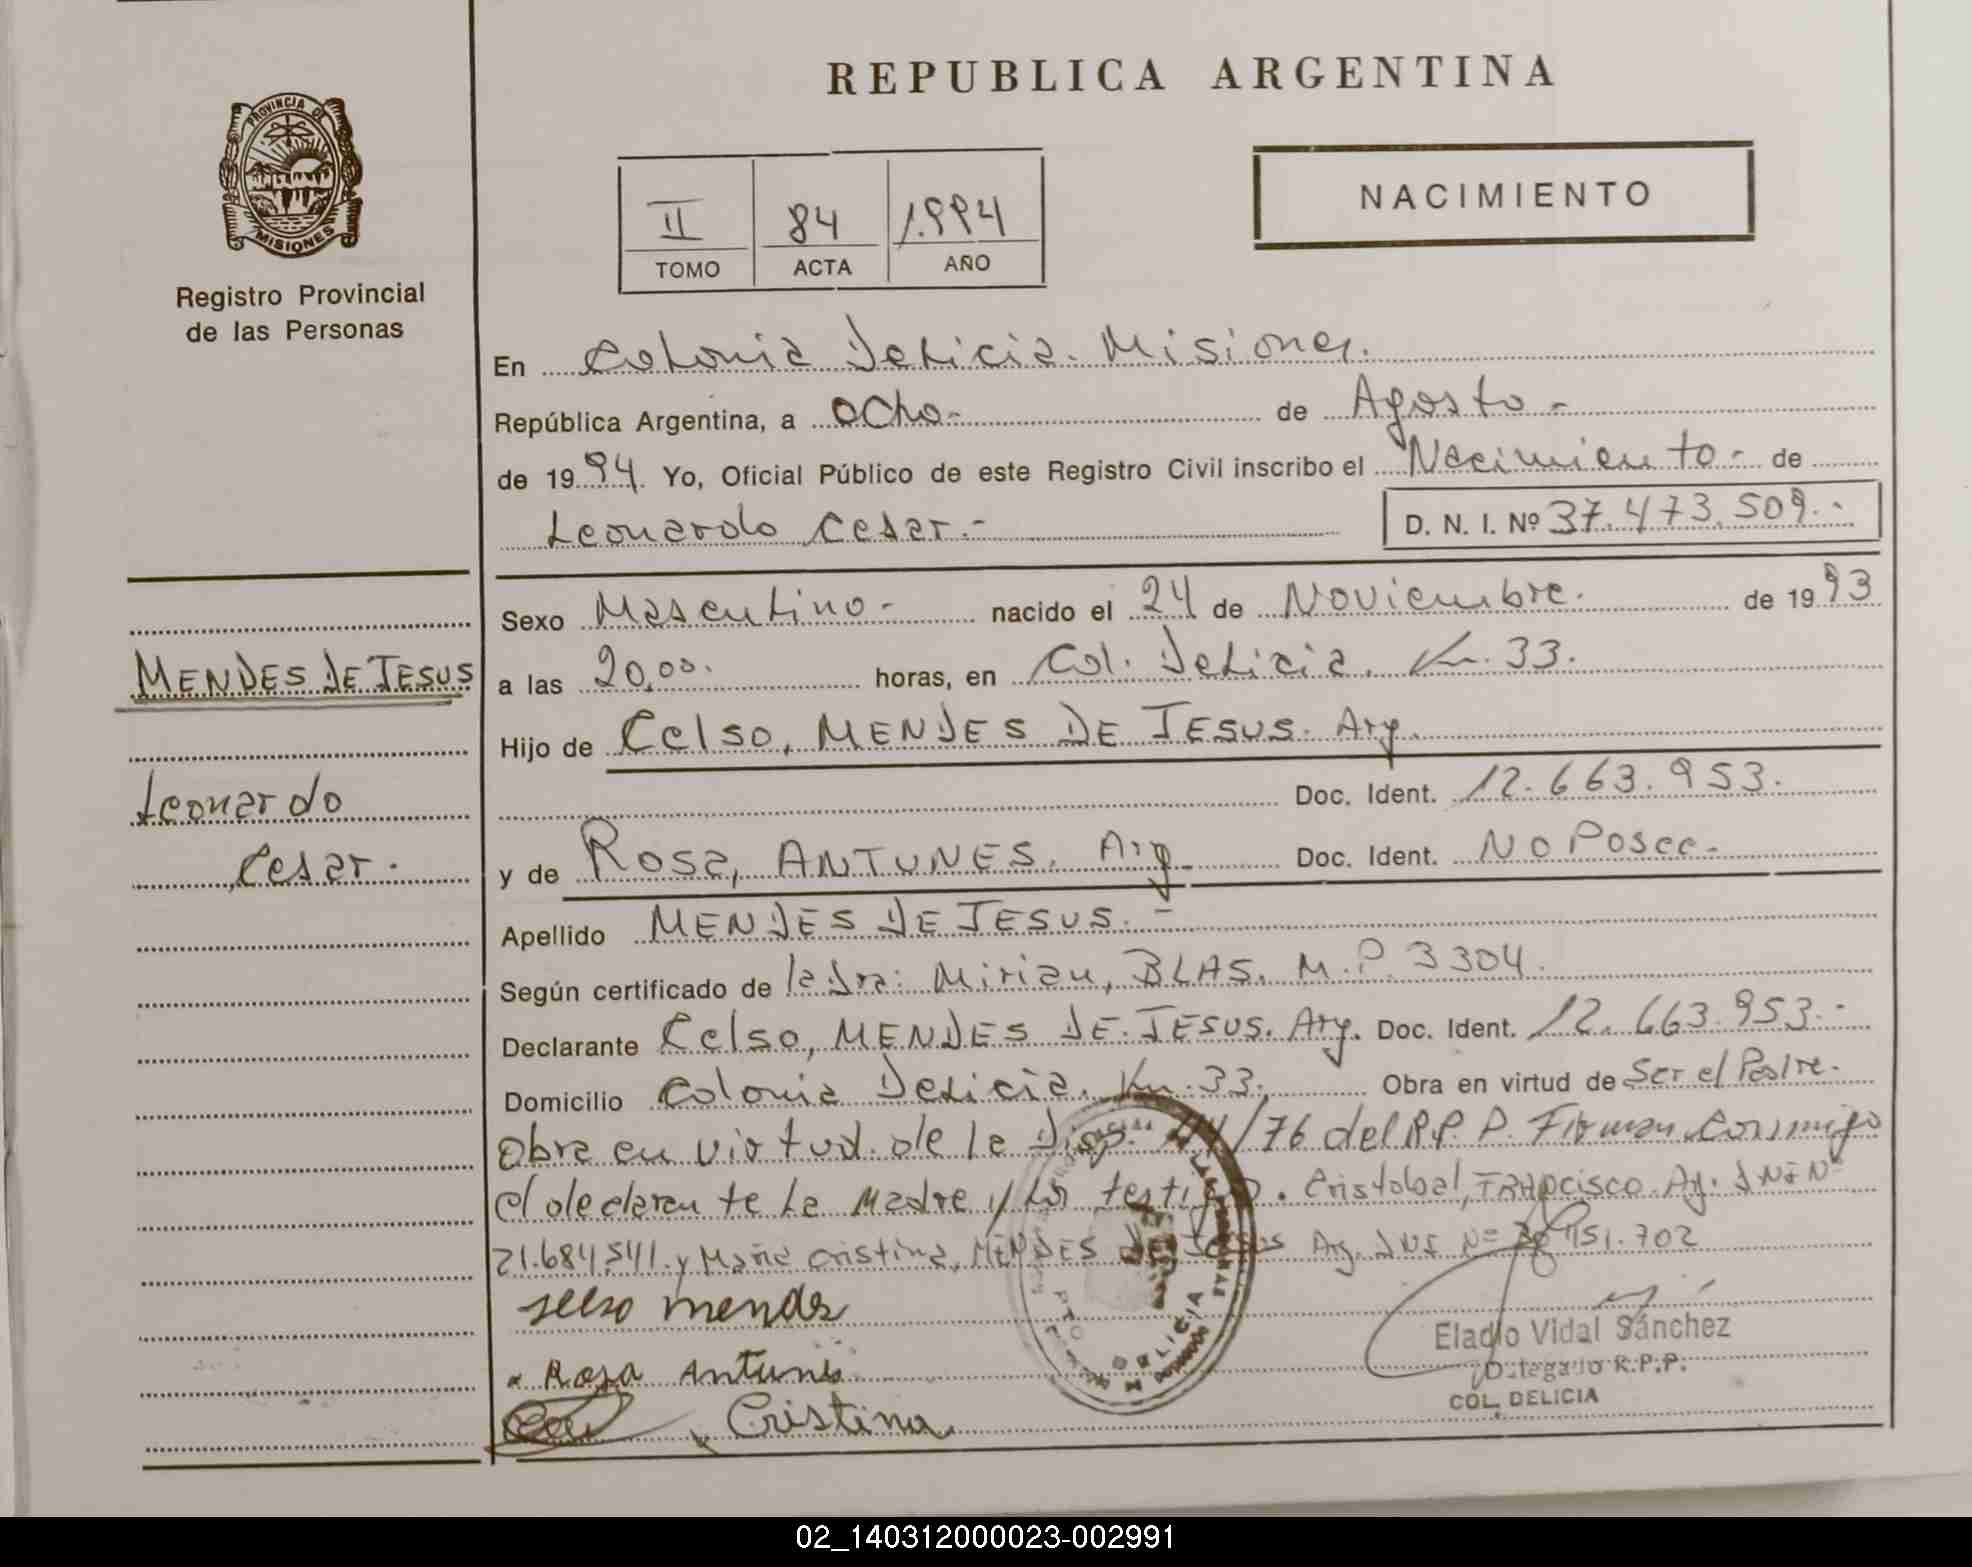 REPUBLICA ARGENTINA
PROVINCIA DE
MISIONES
Registro Provincial
de las Personas
II 84 1.994
TOMO ACTA AÑO
NACIMIENTO
En Colonia Delicia. Misiones.
República Argentina, a ocho.- de Agosto -
de 1994. Yo, Oficial Público de este Registro Civil inscribo el Nacimiento - de
Leonardo Cesar.- D. N. I. Nº 37.473.509.-
MENDES DE JESUS
Leonardo
Cesar.
Sexo Masculino - nacido el 24 de Noviembre. de 1993
a las 20,00. horas, en Col. Delicia. Km. 33.
Hijo de Celso, MENDES DE JESUS. Arg.
Doc. Ident. 12.663.953.
y de Rosa, ANTUNES. Arg. Doc. Ident. No Posee.
Apellido MENDES DE JESUS. -
Según certificado de la Dra: Mirian, BLAS. M.P. 3304.
Declarante Celso, MENDES DE JESUS. Arg. Doc. Ident. 12.663.953.-
Domicilio Colonia Delicia. Km. 33. Obra en virtud de Ser el Padre.
Obra en virtud de la Disp. /76 del R.P.P. Firman Conmigo
el declarante La Madre y los testigo. Cristobal, Francisco Ag. DNI Nº
21.684.541. y Maria Cristina, MENDES DE JESUS Arg. DNI Nº 151.702
selso mendes
Rosa Antunes
Cristina
DELICIA
Eladio Vidal Sánchez
Delegado R.P.P.
COL. DELICIA
02_140312000023-002991